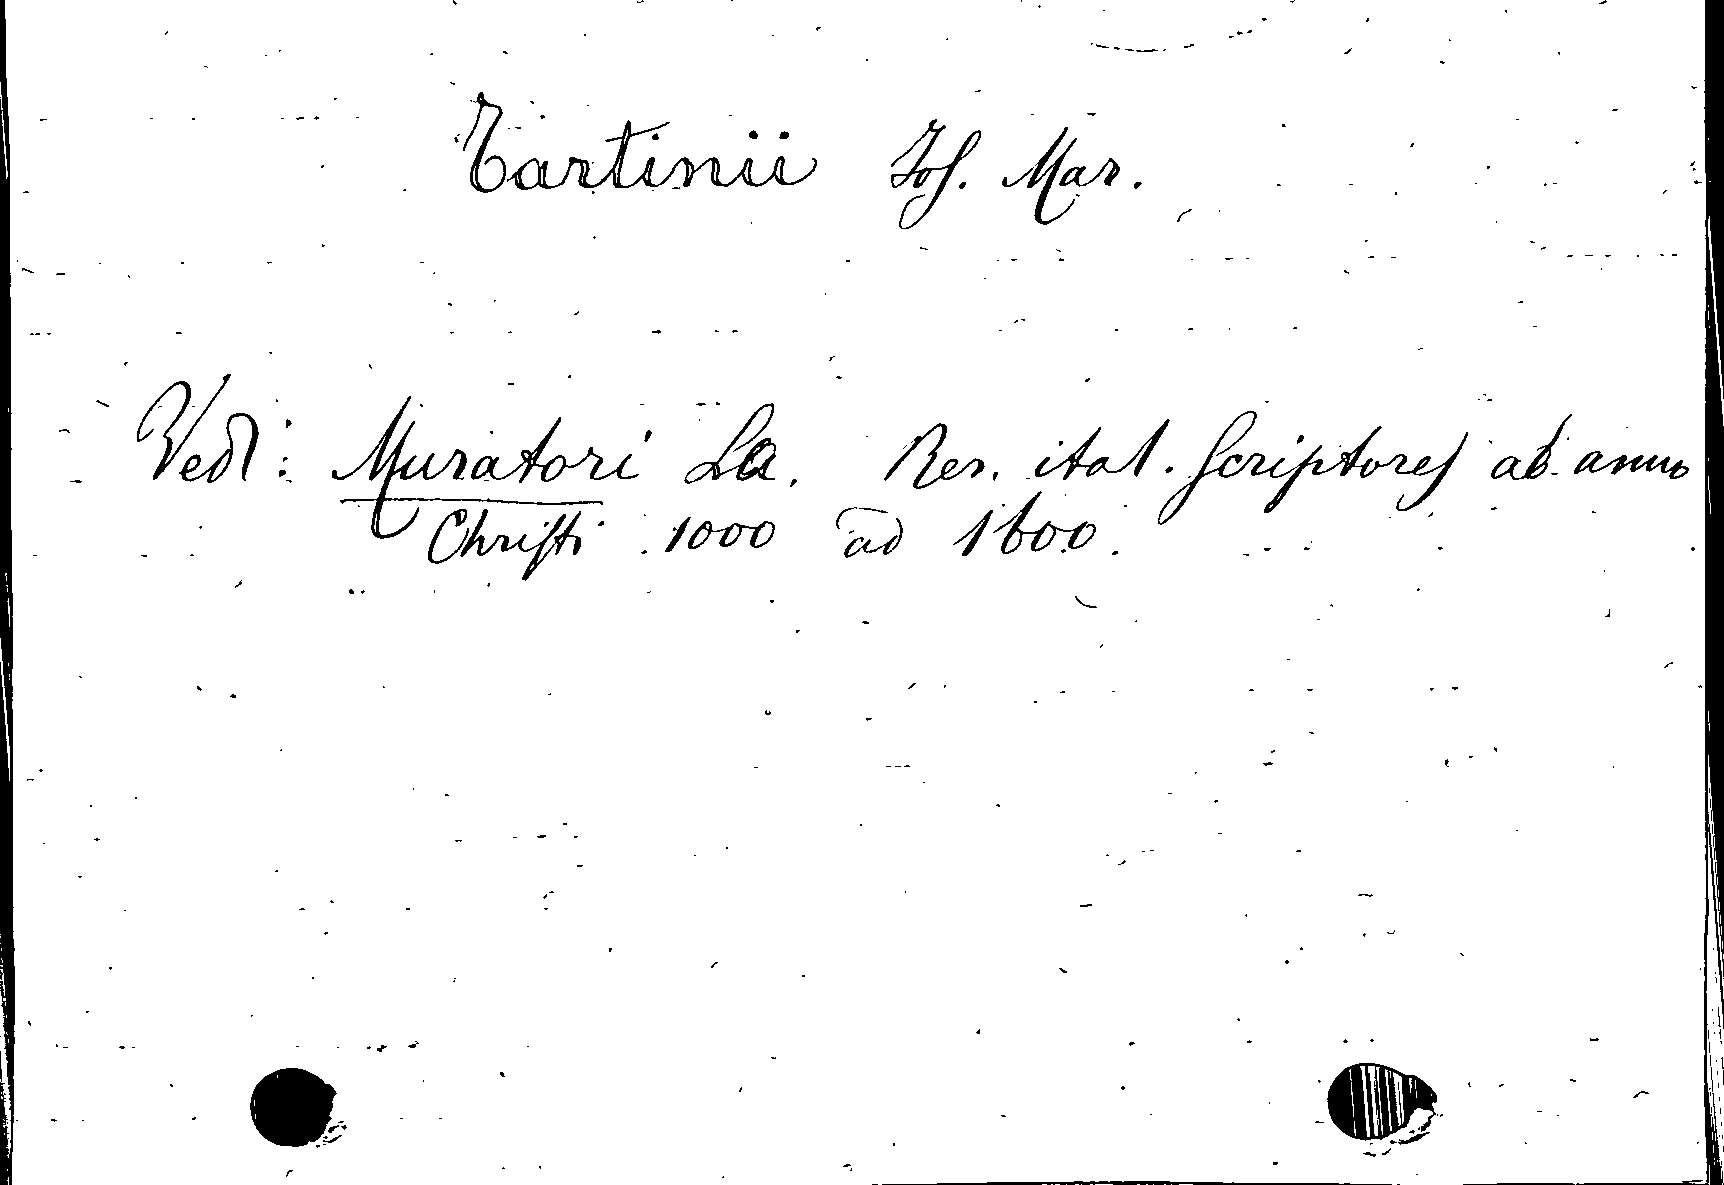 Tartinii Jos. Mar.
Vedi: Muratori La. Rer. ital. Scriptores ab anno
Christi 1000 ad 1600.